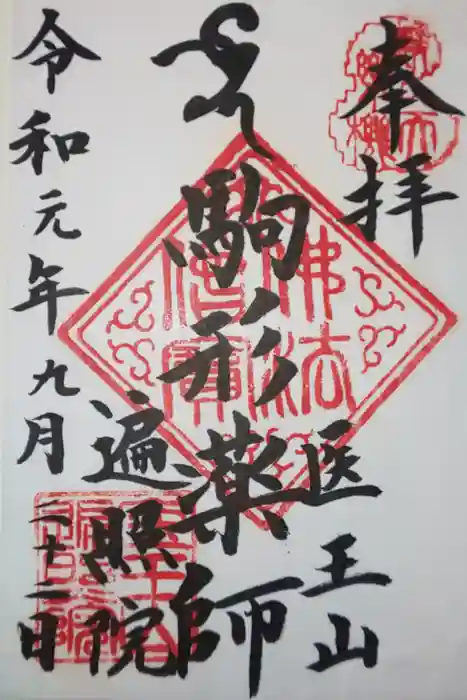 奉拝
医王山
駒形薬師
遍照院
令和元年九月二十二日
佛法僧寳